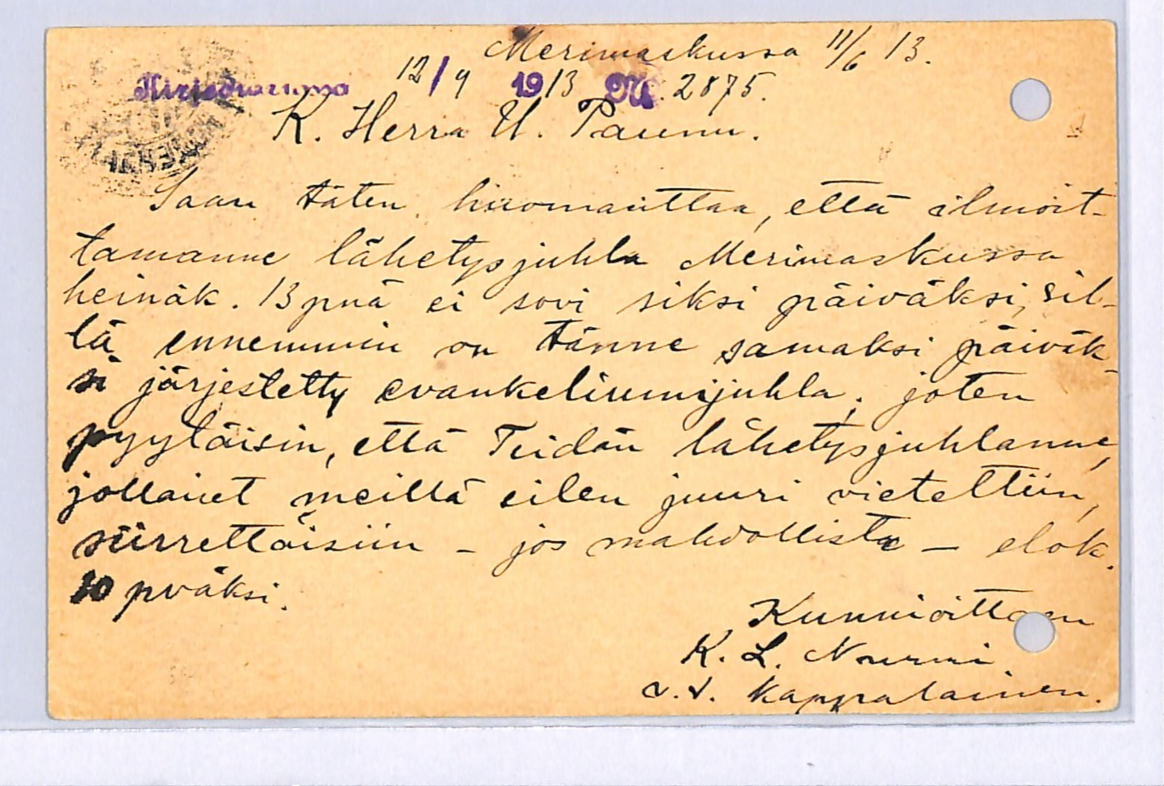 Merimaskussa 11/6 13.
Kirjediariossa 12/4 1913 № 2875.
K. Herra U. Paunu.
Saan täten huomauttaa, että ilmoit-
tamanne lähetysjuhla Merimaskussa
heinäk. 13 pnä ei sovi siksi päiväksi, sil-
lä ennemmin on tänne samaksi päiväk
si järjestetty evankeliumijuhla, joten
pyytäisin, että Teidän lähetysjuhlanne,
jollaiset meillä eilen juuri vietettiin,
siirrettäisiin – jos mahdollista – elok.
10 pväksi.
Kunnioittaen
K. L. Nurmi
v.t. kappalainen.